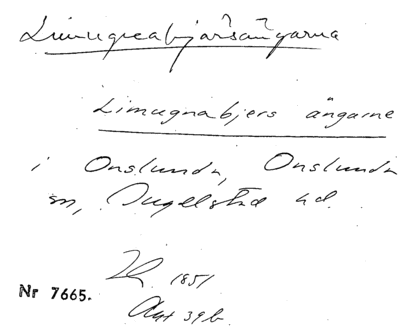 Limugneabjärsängarna
Limugnabjers ängarne
i Onslunda, Onslunda
sn, Ingelstad hd.
LR 1851
Akt 39b
Nr 7665.